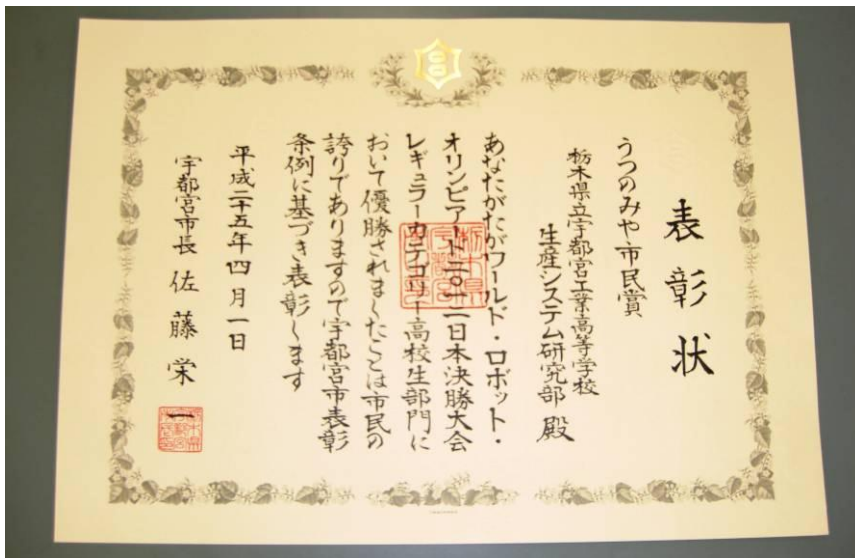 表彰状
うつのみや市民賞
栃木県立宇都宮工業高等学校
生産システム研究部 殿
あなたがたがワールド・ロボット・
オリンピアード二〇一二日本決勝大会
レギュラーカテゴリー高校生部門に
おいて優勝されましたことは市民の
誇りでありますので宇都宮市表彰
条例に基づき表彰します
平成二十五年四月一日
宇都宮市長 佐藤栄一